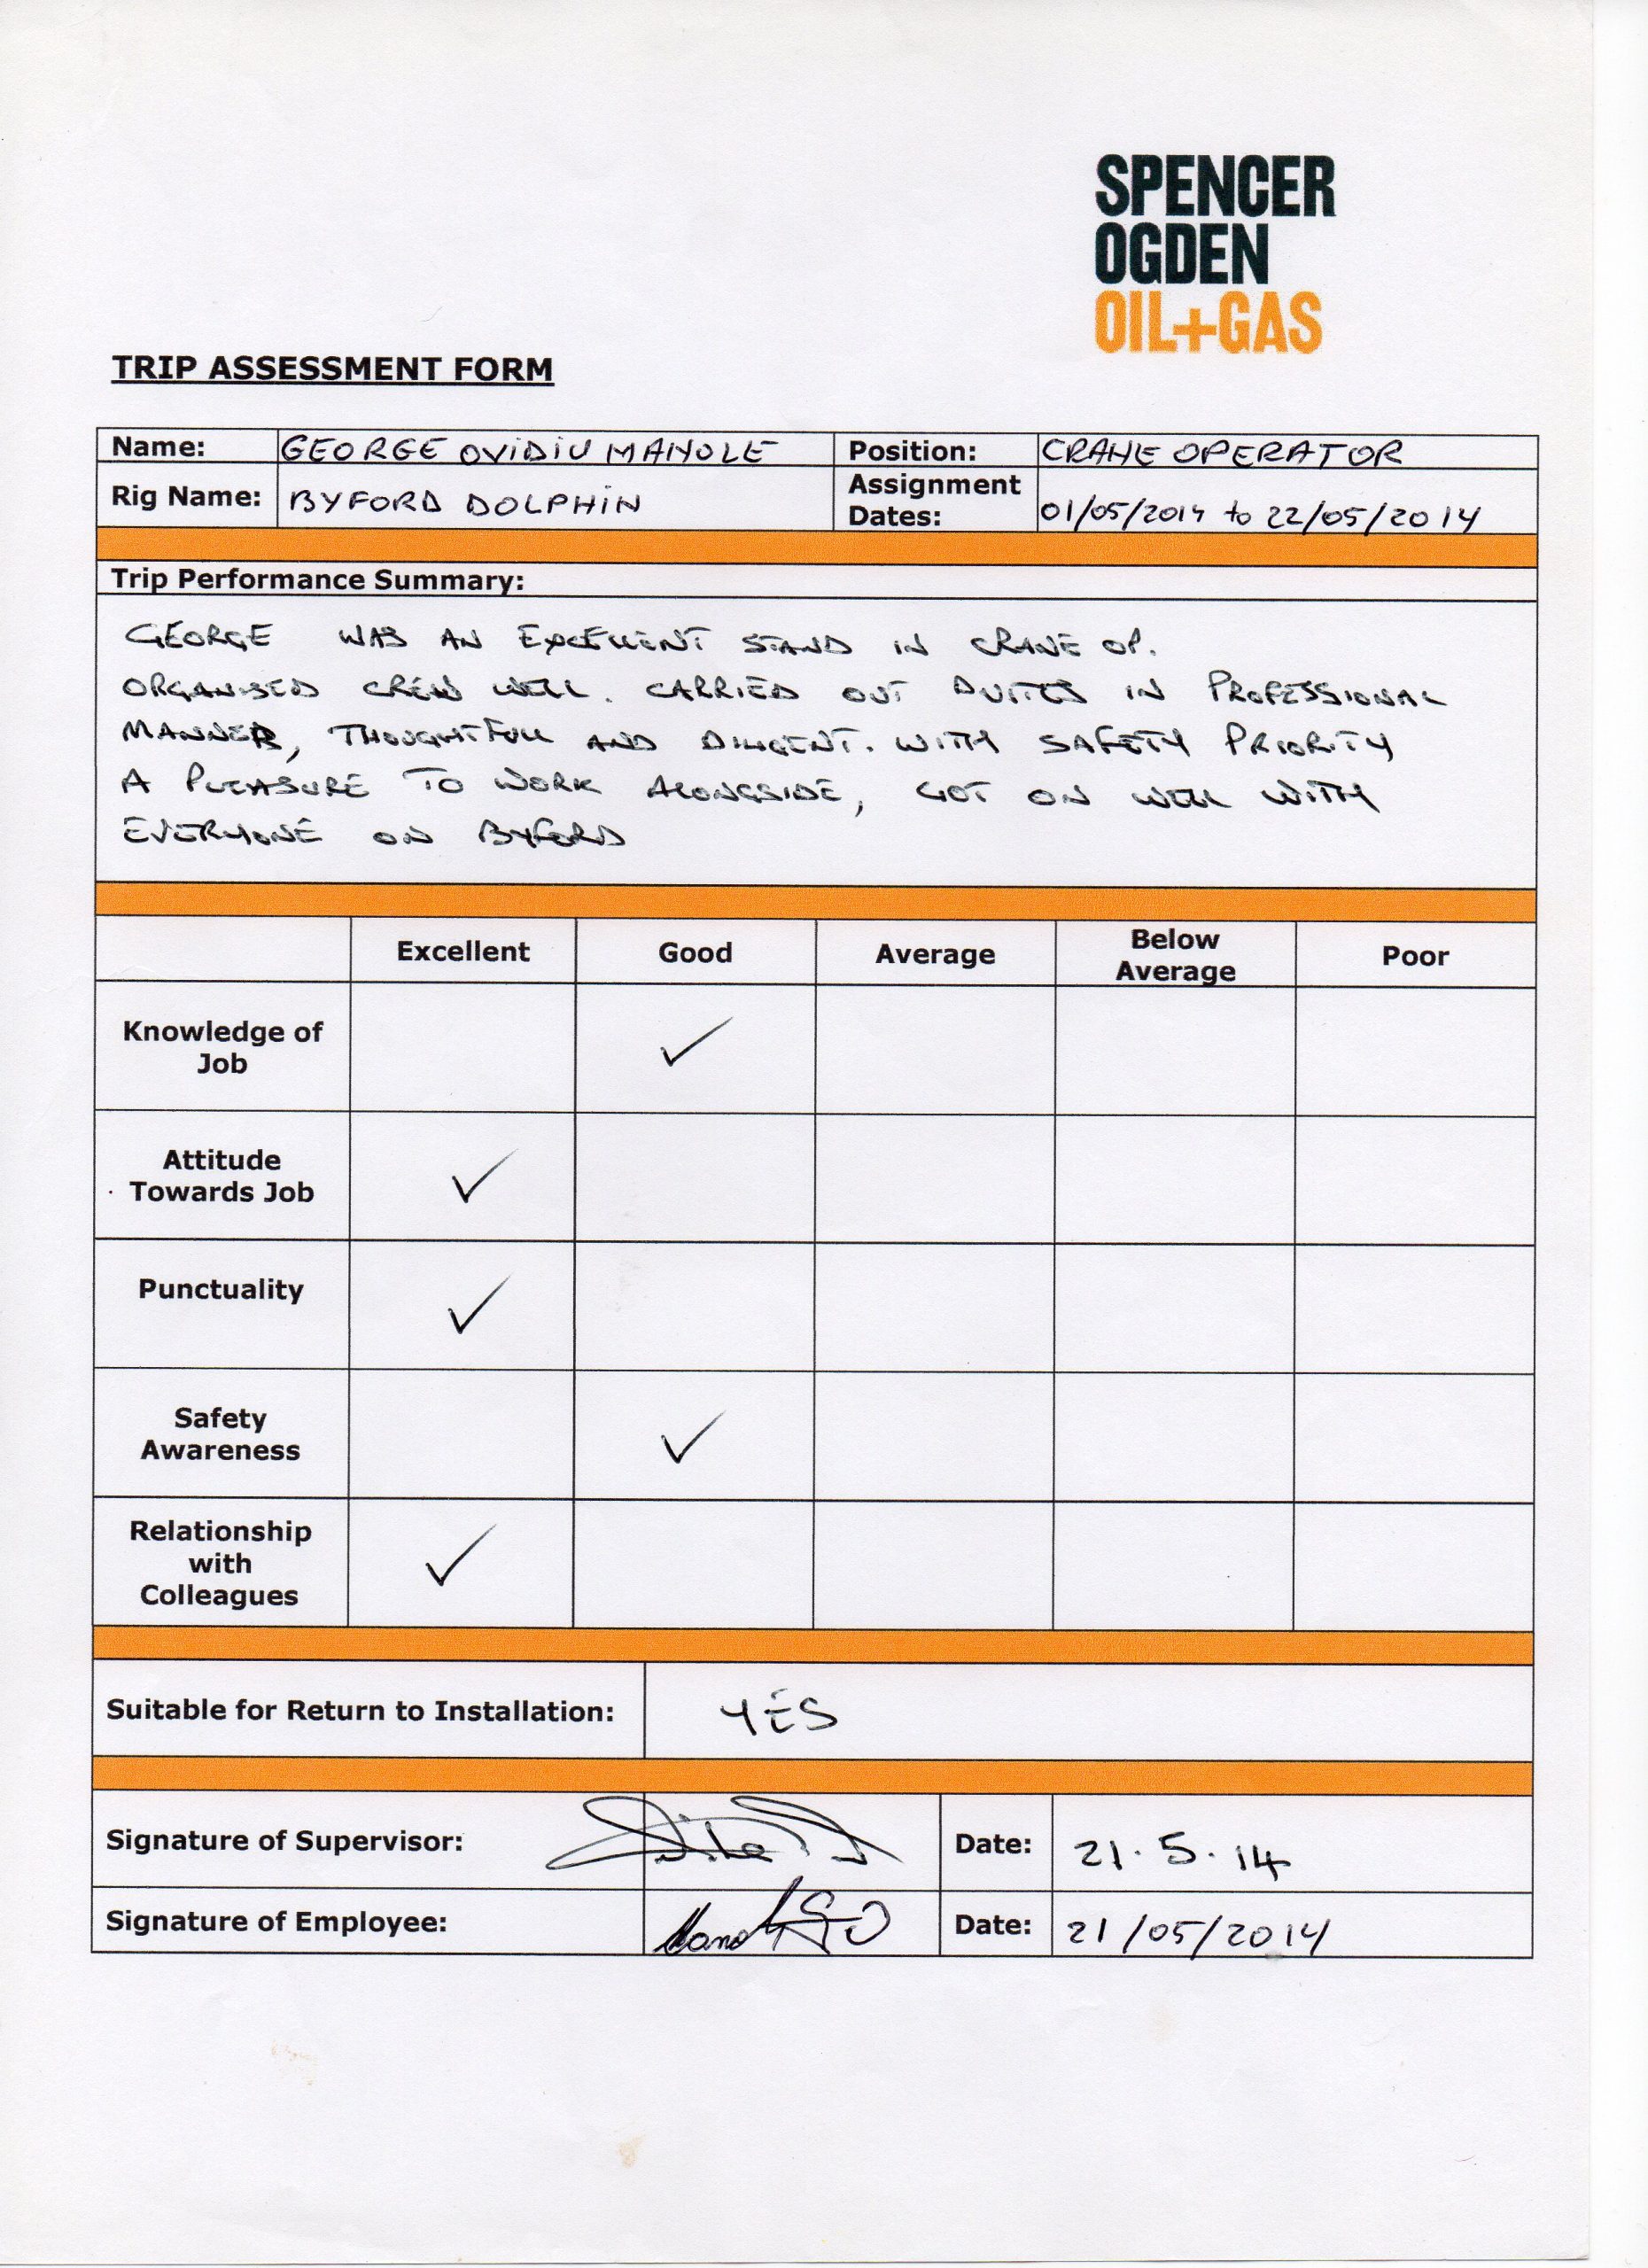 SPENCER
OGDEN
OIL+GAS
TRIP ASSESSMENT FORM
Name: GEORGE OVIDIU MANOLE Position: CRANE OPERATOR
Rig Name: BYFORD DOLPHIN Assignment Dates: 01/05/2014 to 22/05/2014
Trip Performance Summary:
GEORGE WAS AN EXCELLENT STAND IN CRANE OP.
ORGANISED CREW WELL. CARRIED OUT DUTIES IN PROFESSIONAL
MANNER, THOUGHTFULL AND DILIGENT. WITH SAFETY PRIORITY
A PLEASURE TO WORK ALONGSIDE, GOT ON WELL WITH
EVERYONE ON BYFORD
Excellent Good Average Below Average Poor
Knowledge of Job ✓
Attitude Towards Job ✓
Punctuality ✓
Safety Awareness ✓
Relationship with Colleagues ✓
Suitable for Return to Installation: YES
Signature of Supervisor: Date: 21.5.14
Signature of Employee: Date: 21/05/2014